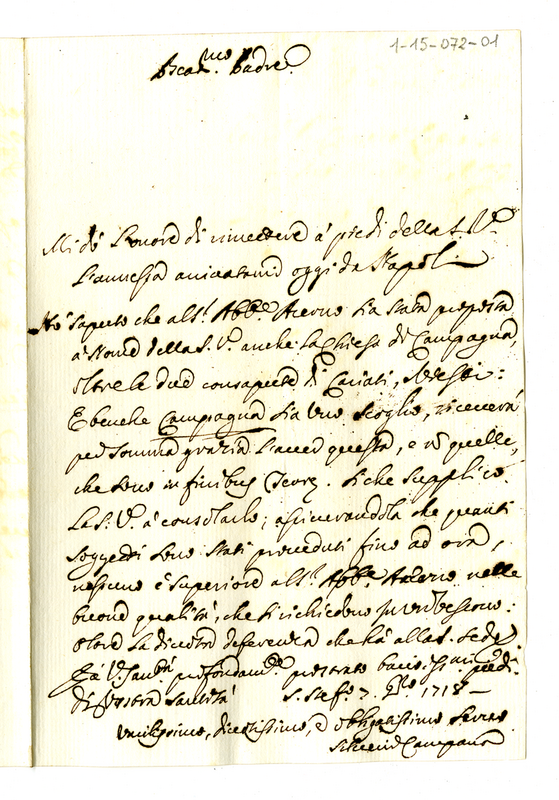 1-15-072-01
Beat.mo Padre.
Mi dò l'onore di rimettere a' piedi della S. V.
l'annessa oggi da Napoli.
Hò saputo che all' Abb.e Acerno sia stata proposta
à nome della S. V. anche la Chiesa di Campagna,
oltre le due consapute di Cariati,
E benche Campagna sia uno scoglio, riceverà
per somma grazia l'aver questa, e nò quelle,
che sono in finibus Siche supplico
la S. V. à consolarlo; che quanti
soggetti sono stati proceduti fino ad ora,
nessuno è superiore all' Abb.e Acerno nelle
buone qualità, che si richiedono in un Vescovo:
oltre la deferenza che hà alla S. Sede.
E à V. Sant.tà profondam.e prostrato bacio i SS.mi piedi.
di Vostra Santità S. Stef.o 7. 1718
umilissimo, et obligatissimo Servo
Campana